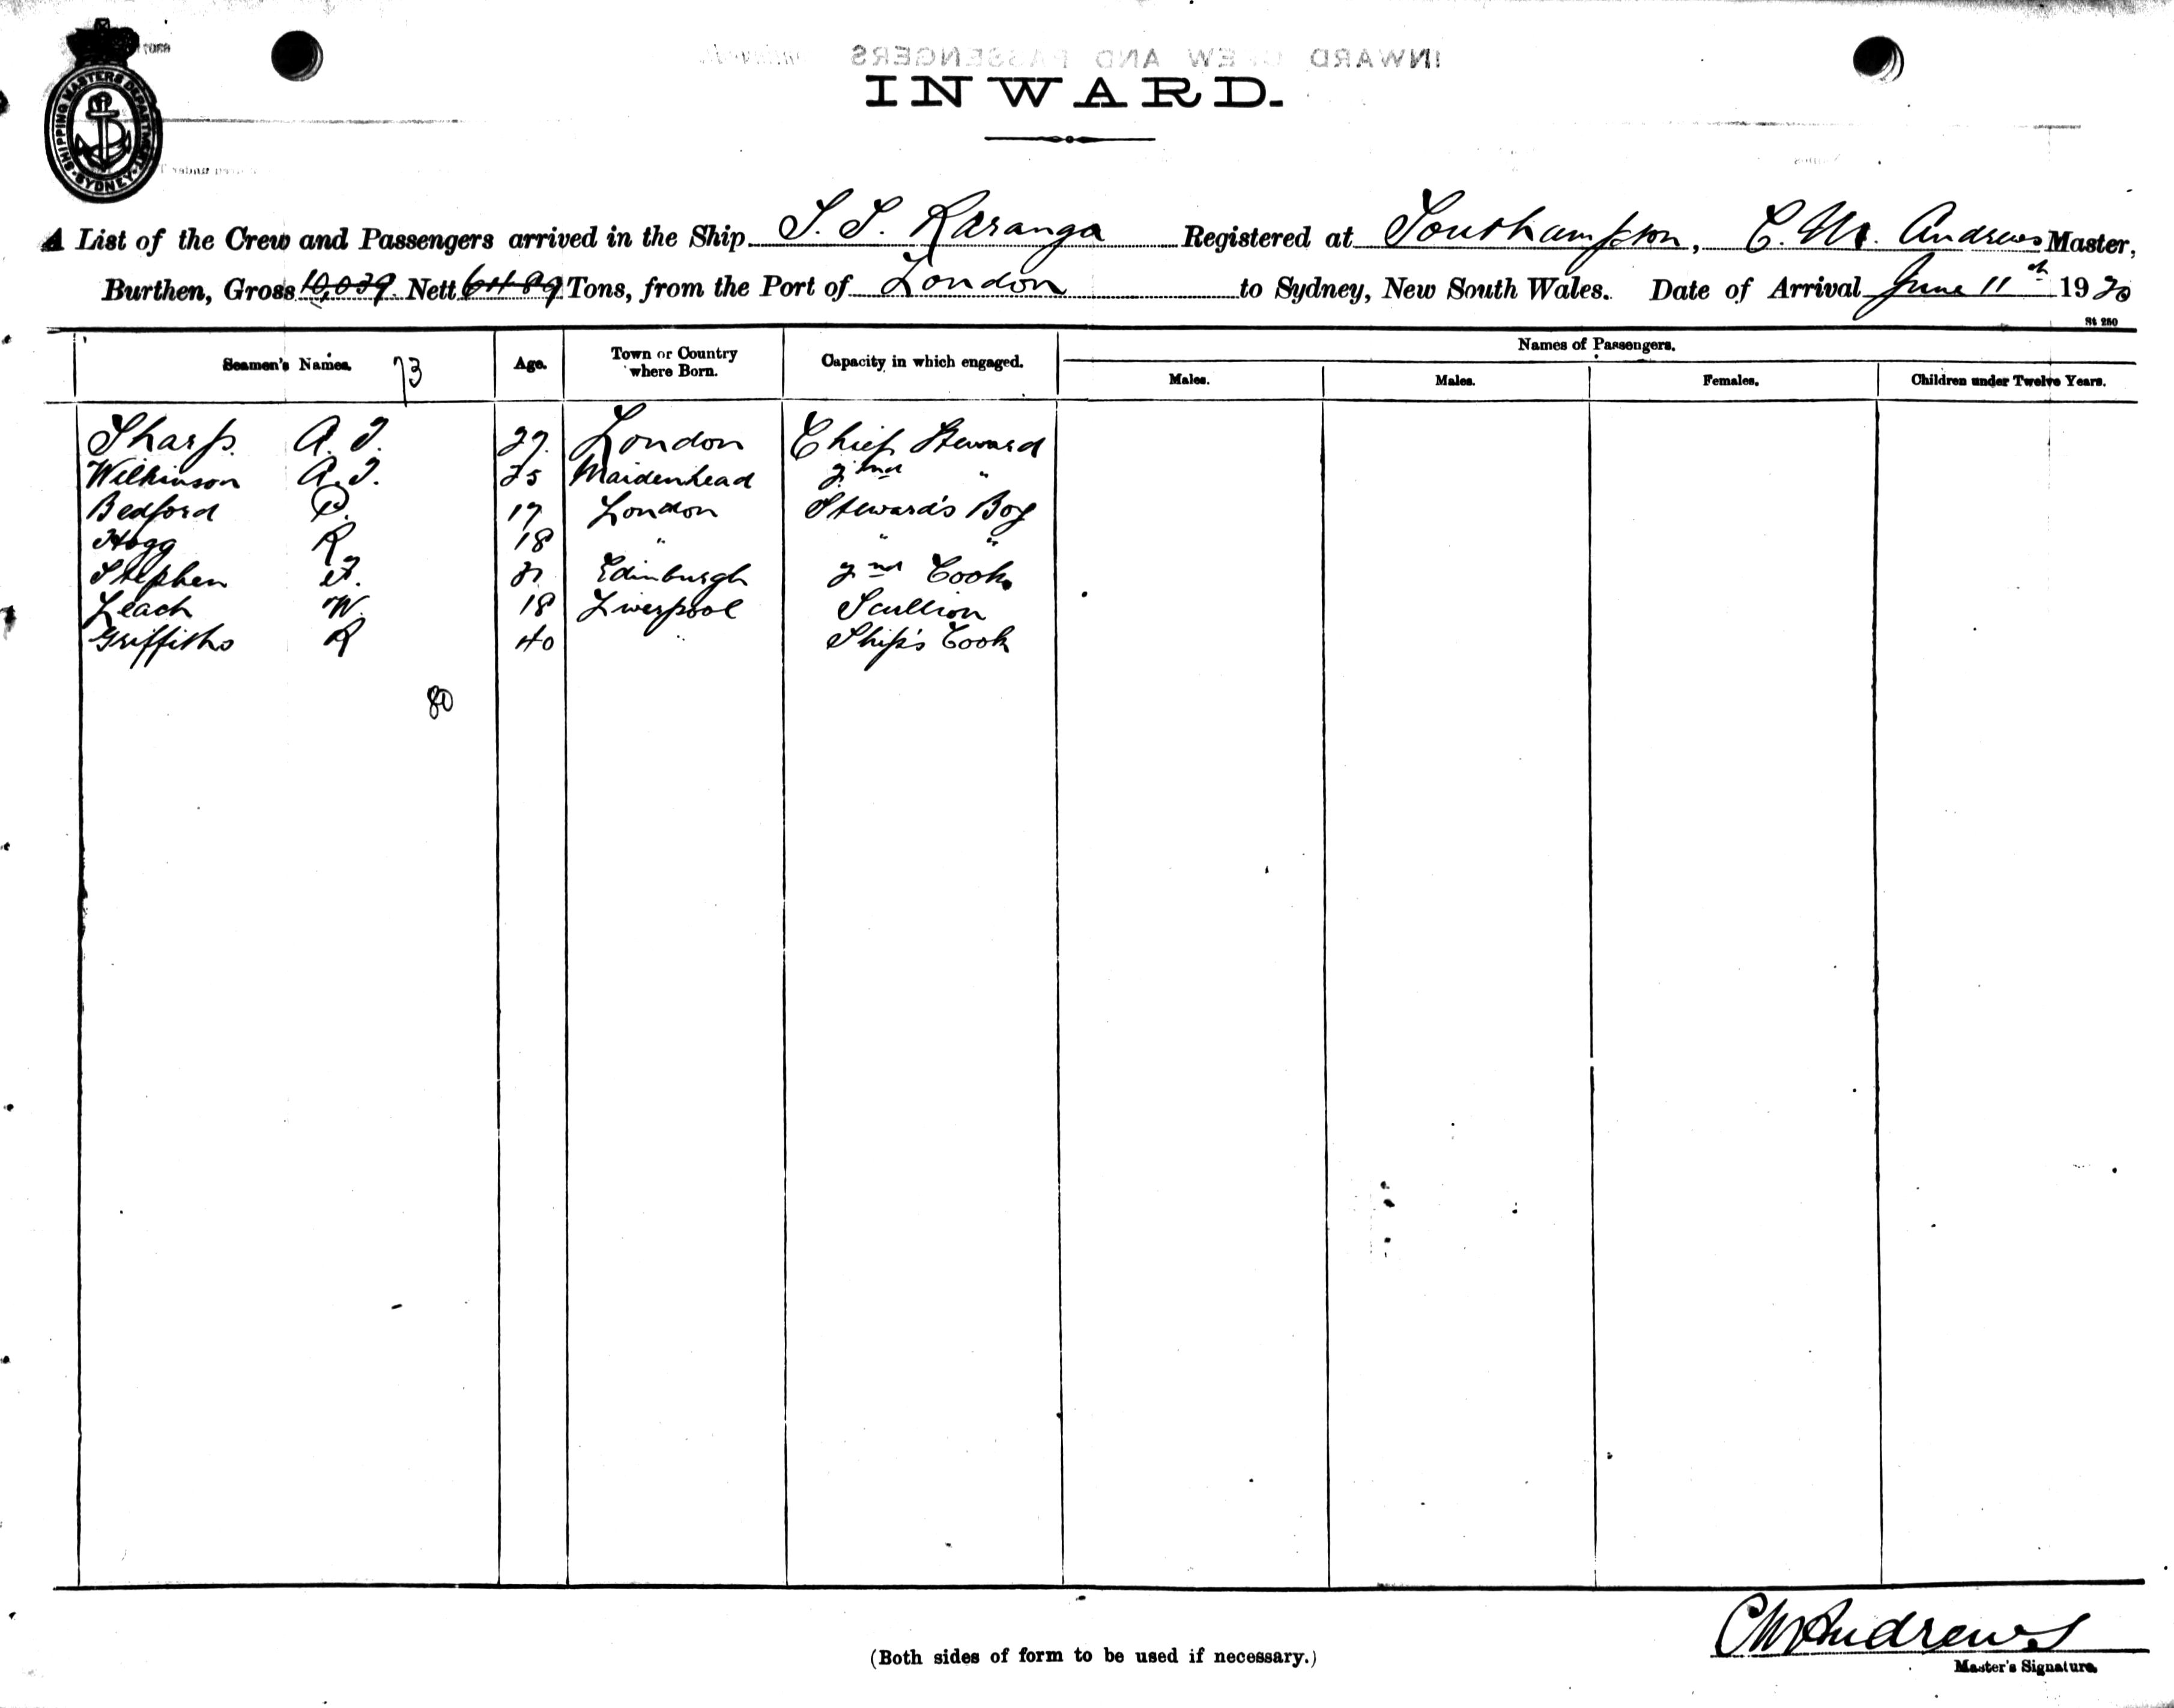 SHIPPING MASTERS DEPARTMENT SYDNEY
INWARD CREW AND PASSENGERS
INWARD.
A List of the Crew and Passengers arrived in the Ship S. S. Karanga Registered at Southampton, C. W. Andrews Master,
Burthen, Gross Nett Tons, from the Port of London to Sydney, New South Wales. Date of Arrival June 11th 1920
St 250
Seamen's Names. 73 Age. Town or Country where Born. Capacity in which engaged. Names of Passengers.
Males. Males. Females. Children under Twelve Years.
Sharp. A. London Chief Steward
Wilkinson A. 25 Maidenhead 2nd "
Bedford P. 17 London Steward's Boy
Hogg R 18 " " "
Stephen Edinburgh 2nd Cook
Leach W. 18 Liverpool Scullion
Griffiths R 40 " Ship's Cook
80
C W Andrews
(Both sides of form to be used if necessary.)
Master's Signature.